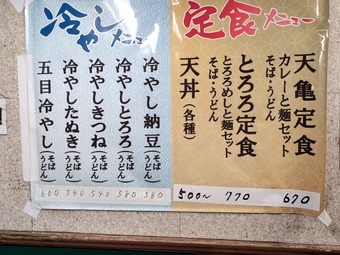 冷やしメニュー
冷やし納豆(そば うどん) 580
冷やしとろろ(そば うどん) 580
冷やしきつね(そば うどん) 540
冷やしたぬき(そば うどん) 540
五目冷やし(そば うどん) 600
定食メニュー
天亀定食
カレーと麺セット
そば・うどん
670
とろろ定食
とろろめしと麺セット
そば・うどん
770
天丼(各種)
500〜